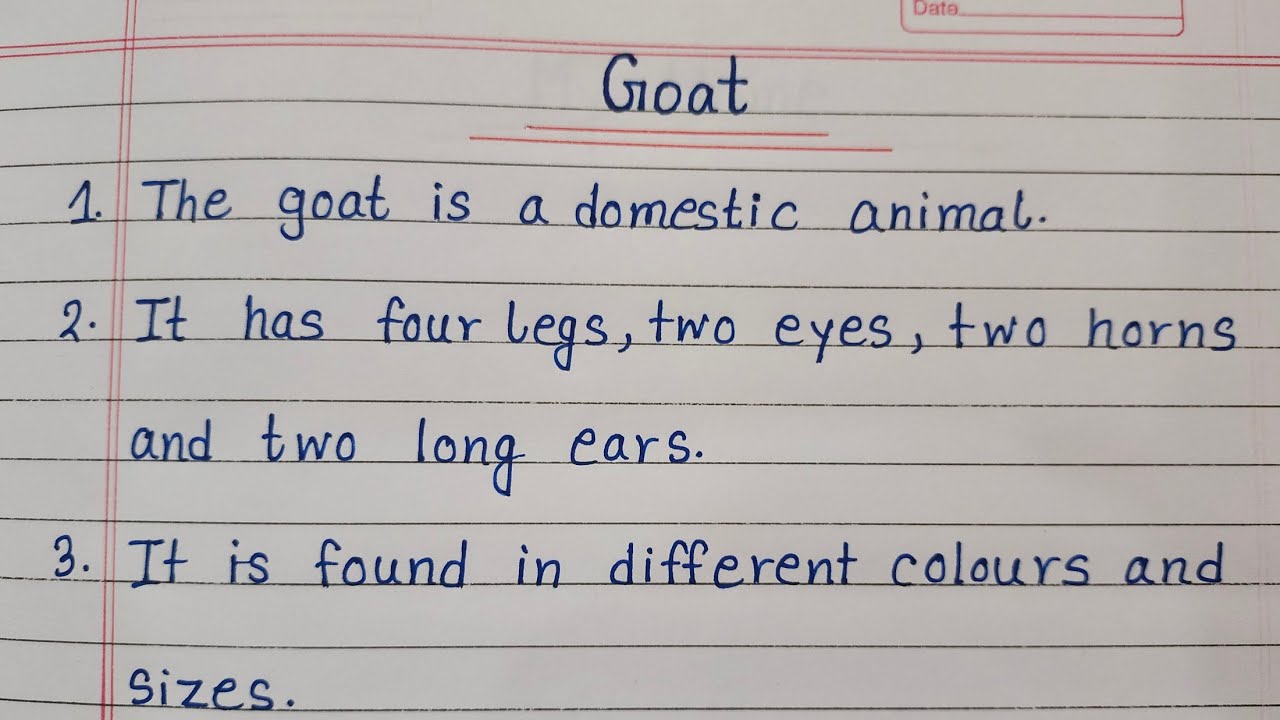 Date
Goat
1. The goat is a domestic animal.
2. It has four legs, two eyes, two horns
and two long ears.
3. It is found in different colours and
sizes.